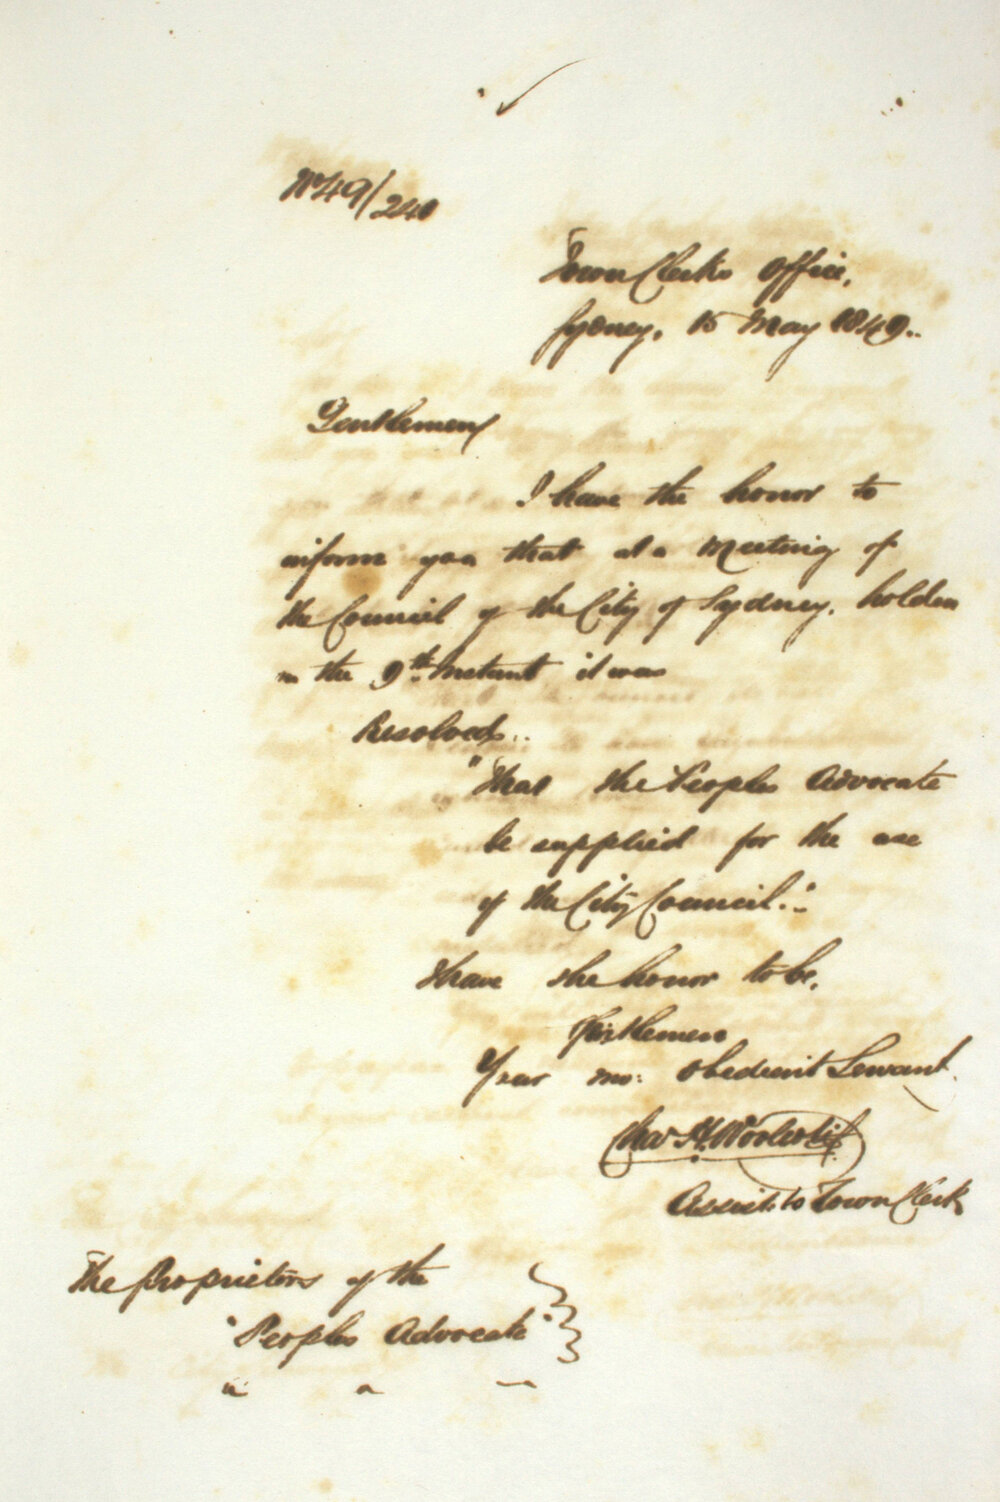 No 49/240
Town Clerks Office,
Sydney, 15 May 1849..
Gentlemen
I have the honor to
inform you that at a Meeting of
the Council of the City of Sydney, holden
on the 9th Instant it was
Resolved..
"That the Peoples Advocate
be supplied for the use
of the City Council."
I have the honor to be,
Gentlemen
Your mo: obedient Servant.
Chas H. Woolcott
Assist. to Town Clerk
The Proprietors of the
"Peoples Advocate"